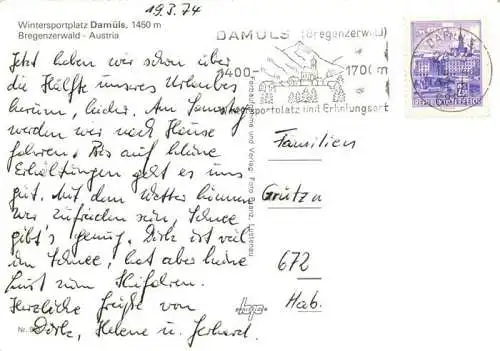 19.3.74
Wintersportplatz Damüls, 1450 m
Bregenzerwald - Austria
Jetzt haben wir schon über
die Hälfte unseres Urlaubes
herum, leider. Am Samstag
werden wir nach Hause
fahren. Bis auf kleine
Erkältungen geht es uns
gut. Mit dem Wetter können
wir zufrieden sein, Schnee
gibt's genug. Dirk ist viel
im Schnee, hat aber keine
Lust zum Skifahren.
Herzliche Grüße von
Dirk, Helene u. Gerhard.
DAMÜLS (Bregenzerwald)
1400 1700 m
Wintersportplatz und Erholungsort
DAMÜLS
REPUBLIK ÖSTERREICH
Verlag Foto Branz, Lustenau
Familien
672
Hab.
Nr.